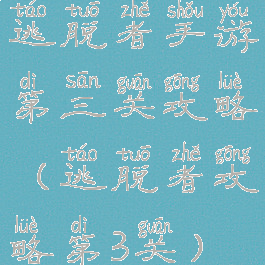 táo tuō zhě shǒu yóu
逃脱者手游
dì sān guān gōng lüè
第三关攻略
táo tuō zhě gōng
(逃脱者攻
lüè dì guān
略第3关)